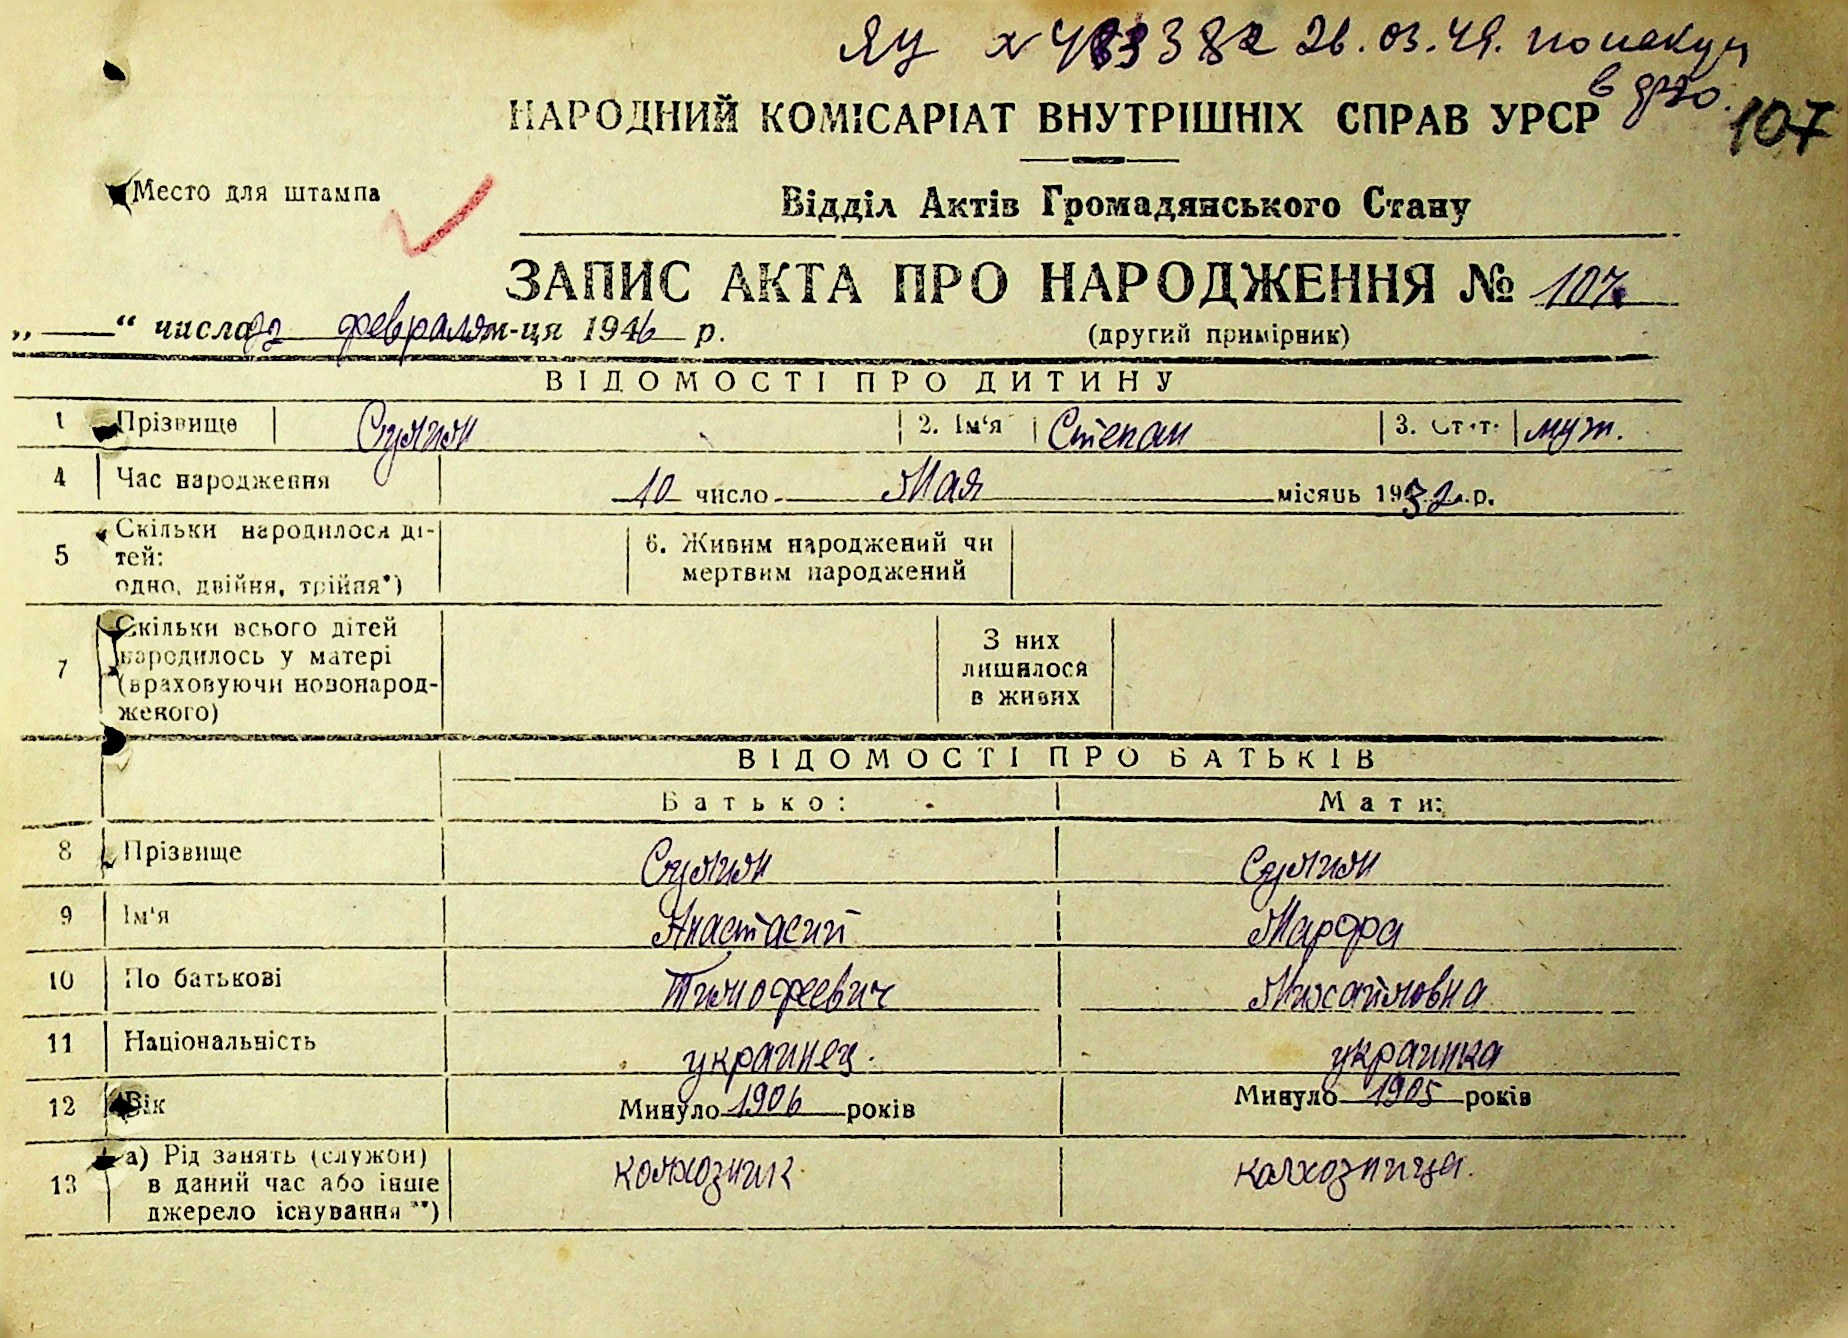 ЯЦ № 483382 26.03.49.
107
НАРОДНИЙ КОМІСАРІАТ ВНУТРІШНІХ СПРАВ УРСР
Место для штампа
Відділ Актів Громадянського Стану
ЗАПИС АКТА ПРО НАРОДЖЕННЯ № 107
„ “ числа 22 февраля м-ця 1946 р.
(другий примірник)
ВІДОМОСТІ ПРО ДИТИНУ
1 Прізвище Сулим 2. Ім‘я Степан 3. Стать муж.
4 Час народження 10 число Мая місяць 1932 р.
5 Скільки народилося ді-
тей:
одно, двійня, трійня*)
6. Живим народжений чи
мертвим народжений
7 Скільки всього дітей
народилось у матері
(враховуючи новонарод-
женого)
З них
лишилося
в живих
ВІДОМОСТІ ПРО БАТЬКІВ
Батько: Мати:
8 Прізвище Сулим Сулим
9 Ім‘я Анастасий Марфа
10 По батькові Тимофеевич Михайловна
11 Національність украинец. украинка
12 Вік Минуло 1906 років Минуло 1905 років
13 а) Рід занять (служби) колхозник колхозница.
в даний час або інше
джерело існування **)